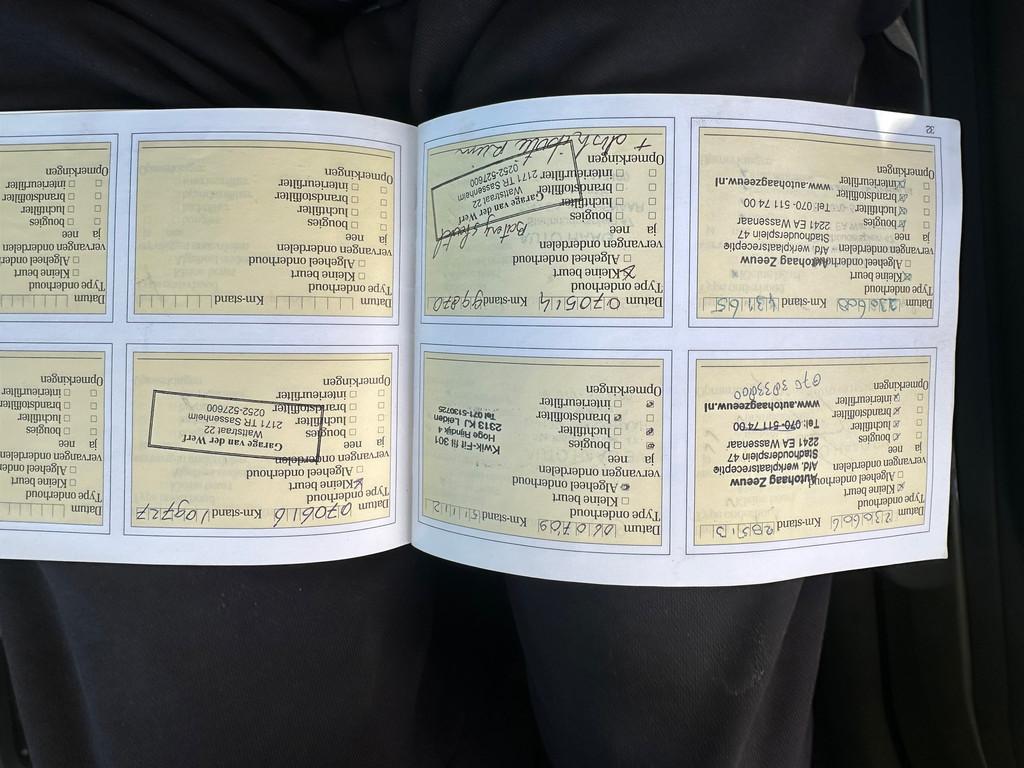 Datum 230606 Km-stand 28513
Type onderhoud
Kleine beurt
Algeheel onderhoud
vervangen onderdelen
ja nee
bougies
luchtfilter
brandstoffilter
interieurfilter
Opmerkingen
Autohaag Zeeuw
Afd. werkplaatsreceptie
Stadhoudersplein 47
2241 EA Wassenaar
Tel: 070-511 74 00
www.autohaagzeeuw.nl
Datum 060709 Km-stand
Type onderhoud
Kleine beurt
Algeheel onderhoud
vervangen onderdelen
ja nee
bougies
luchtfilter
brandstoffilter
interieurfilter
Opmerkingen
Kwik-Fit fil 301
Hoge Rijndijk 4
2313 KJ Leiden
Tel 071-5130725
Datum 070616 Km-stand 109727
Type onderhoud
Kleine beurt
Algeheel onderhoud
vervangen onderdelen
ja nee
bougies
luchtfilter
brandstoffilter
interieurfilter
Opmerkingen
Garage van der Werf
Wattstraat 22
2171 TR Sassenheim
0252-527600
Datum
Type onderhoud
Kleine beurt
Algeheel onderhoud
vervangen onderdelen
ja nee
bougies
luchtfilter
brandstoffilter
interieurfilter
Opmerkingen
Datum 230608 Km-stand 43165
Type onderhoud
Kleine beurt
Algeheel onderhoud
vervangen onderdelen
ja nee
bougies
luchtfilter
brandstoffilter
interieurfilter
Opmerkingen
Autohaag Zeeuw
Afd. werkplaatsreceptie
Stadhoudersplein 47
2241 EA Wassenaar
Tel: 070-511 74 00
www.autohaagzeeuw.nl
Datum 070514 Km-stand 99870
Type onderhoud
Kleine beurt
Algeheel onderhoud
vervangen onderdelen
ja nee
bougies
luchtfilter
brandstoffilter
interieurfilter
Opmerkingen
Garage van der Werf
Wattstraat 22
2171 TR Sassenheim
0252-527600
+ distributie riem
Datum Km-stand
Type onderhoud
Kleine beurt
Algeheel onderhoud
vervangen onderdelen
ja nee
bougies
luchtfilter
brandstoffilter
interieurfilter
Opmerkingen
Datum
Type onderhoud
Kleine beurt
Algeheel onderhoud
vervangen onderdelen
ja nee
bougies
luchtfilter
brandstoffilter
interieurfilter
Opmerkingen
32